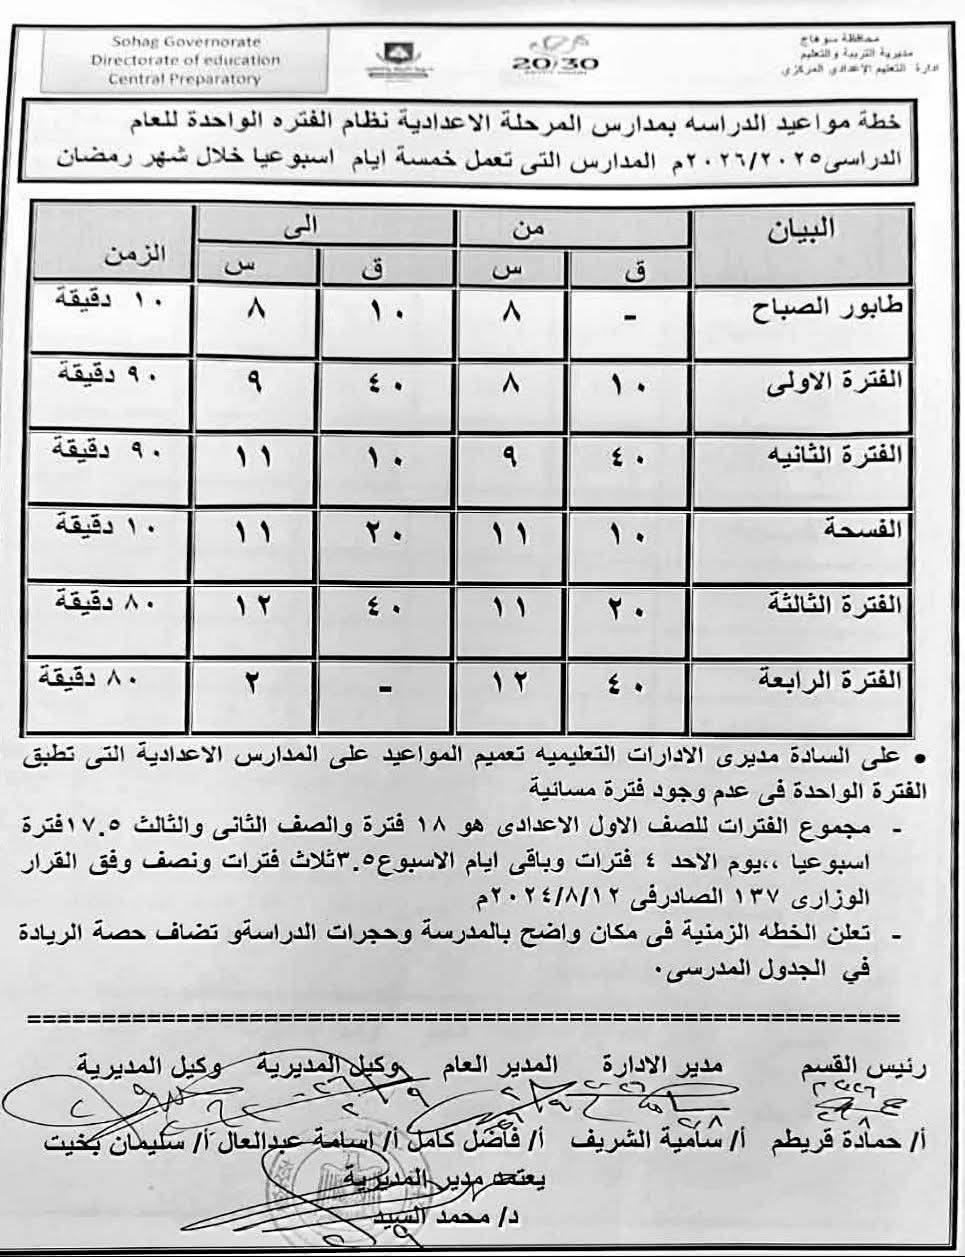 Sohag Governorate
Directorate of education
Central Preparatory
20/30
محافظة سوهاج
مديرية التربية والتعليم
ادارة التعليم الإعدادي المركزي
خطة مواعيد الدراسه بمدارس المرحلة الاعدادية نظام الفتره الواحدة للعام
الدراسى٢٠٢٦/٢٠٢٥م المدارس التى تعمل خمسة ايام اسبوعيا خلال شهر رمضان
البيان من الى الزمن
ق س ق س
طابور الصباح - ٨ ١٠ ٨ ١٠ دقيقة
الفترة الاولى ١٠ ٨ ٤٠ ٩ ٩٠ دقيقة
الفترة الثانيه ٤٠ ٩ ١٠ ١١ ٩٠ دقيقة
الفسحة ١٠ ١١ ٢٠ ١١ ١٠ دقيقة
الفترة الثالثة ٢٠ ١١ ٤٠ ١٢ ٨٠ دقيقة
الفترة الرابعة ٤٠ ١٢ - ٢ ٨٠ دقيقة
• على السادة مديرى الادارات التعليميه تعميم المواعيد على المدارس الاعدادية التى تطبق
الفترة الواحدة فى عدم وجود فترة مسائية
- مجموع الفترات للصف الاول الاعدادى هو ١٨ فترة والصف الثانى والثالث ١٧.٥فترة
اسبوعيا ،،يوم الاحد ٤ فترات وباقى ايام الاسبوع٣.٥ثلاث فترات ونصف وفق القرار
الوزارى ١٣٧ الصادرفى ٢٠٢٤/٨/١٢م
- تعلن الخطه الزمنية فى مكان واضح بالمدرسة وحجرات الدراسةو تضاف حصة الريادة
في الجدول المدرسى٠
====================================================
رئيس القسم مدير الادارة المدير العام وكيل المديرية وكيل المديرية
أ/ حمادة قريطم أ/ سامية الشريف أ/ فاضل كامل أ/ اسامة عبدالعال أ/ سليمان بخيت
يعتمد مدير المديرية
د/ محمد السيد